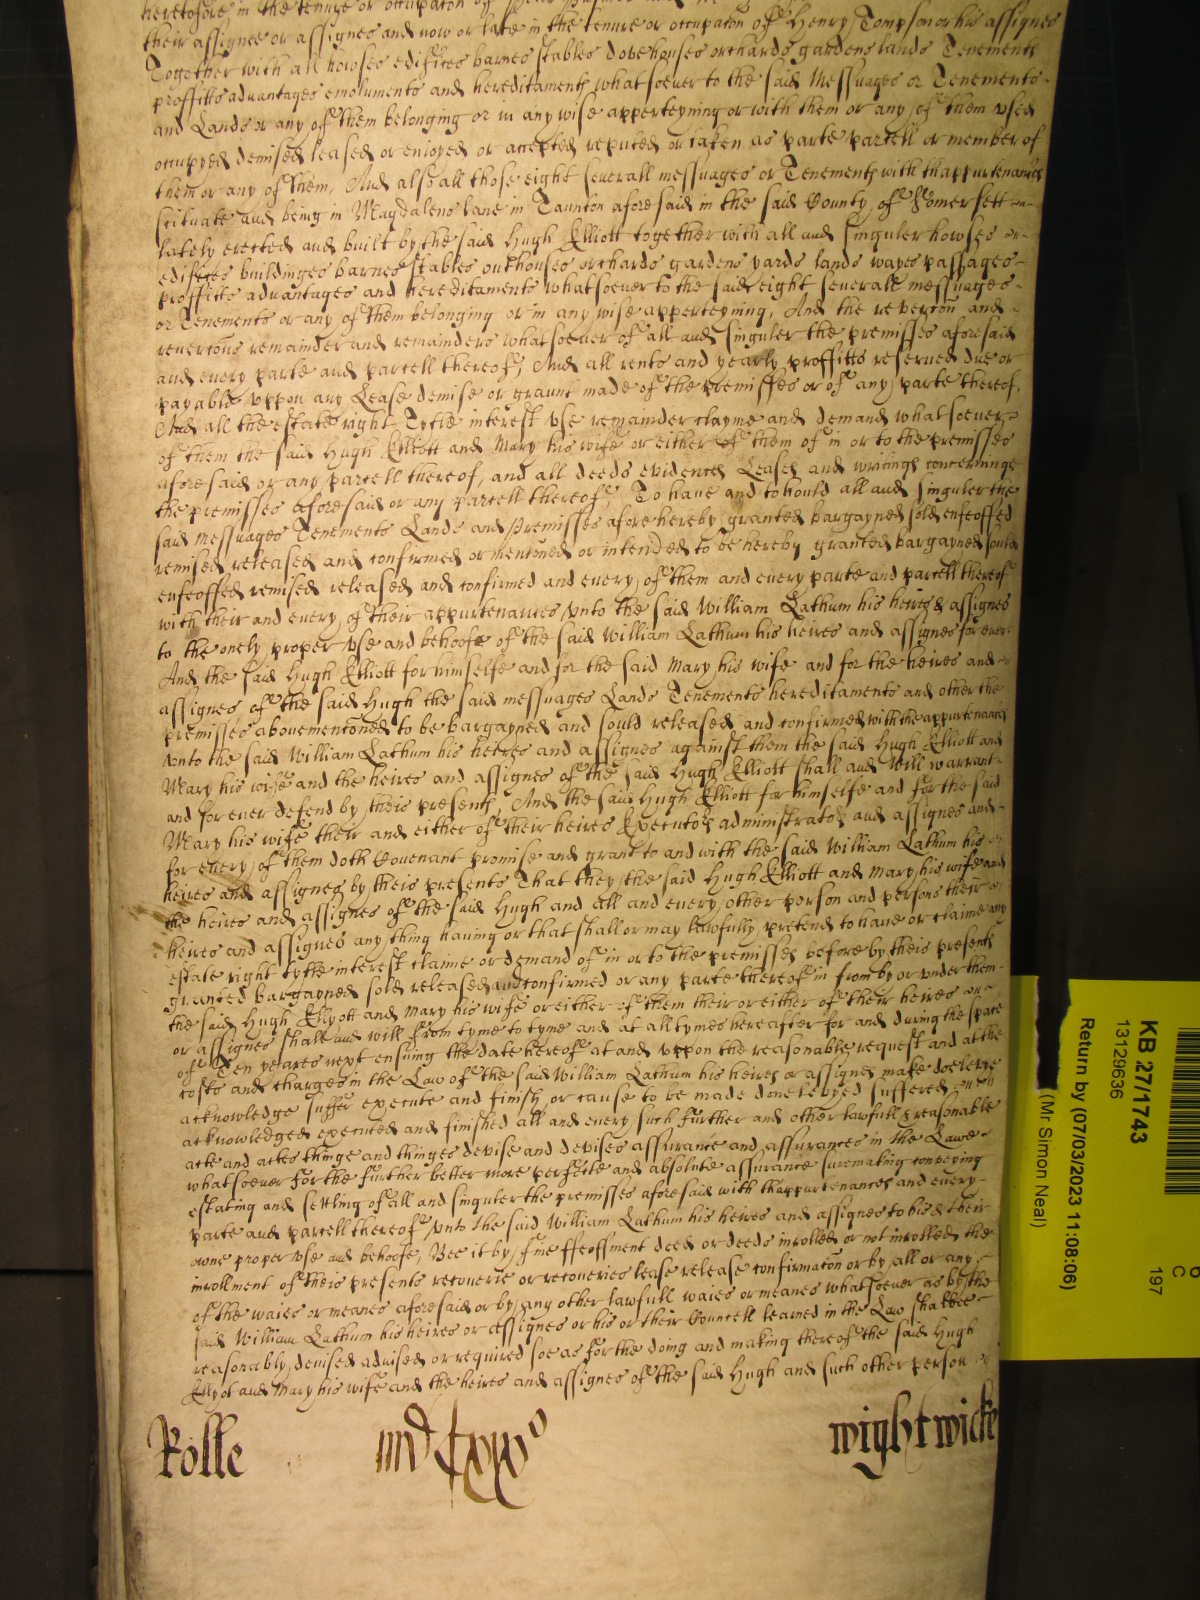 heretofore in the tenure or occupacon of
their assignee or assignes and now or late in the tenure or occupaton of Henry Tompson or his assignes
Together with all howses edifices barnes stables dovehouses orchards gardens lands Tenements
proffitts advantages emoluments and hereditaments whatsoever to the said Messuages or Tenements
and Lands or any of them belonging or in any wise apperteyning or with them or any of them used
occupyed demised leased or enioyed or accepted reputed or taken as parte parcell or member of
them or any of them, And also all those eight severall messuages or Tenements with thappurtenances
scituate and being in Magdalens lane in Taunton aforesaid in the said County of Somersett
lately erected and built by the said Hugh Elliott together with all and singuler howses
edifices buildinges barnes stables outhouses orchards gardens yards lands wayes passages
proffitts advantages and hereditaments whatsoever to the said eight severall messuages
or Tenements or any of them belonging or in any wise apperteyning, And the revercon and
revercons remainder and remainders whatsoever of all and singuler the premisses aforesaid
and every parte and parcell thereof, And all rents and yearly proffitts reserved due or
payable uppon any Lease demise or graunt made of the premisses or of any parte thereof,
And all the estate right Tytle interest use remainder clayme and demand whatsoever
of them the said Hugh Elliott and Mary his wife or either of them of in or to the premisses
aforesaid or any parcell thereof, and all deeds evidences Leases and writings concerninge
the premisses aforesaid or any parcell thereof To have and to hould all and singuler the
said messuages Tenements Lands and Premisses afore hereby granted bargayned sold enfeoffed
remised released and confirmed or mentoned or intended to be hereby granted bargayned sould
enfeoffed remised released and confirmed and every of them and every parte and parcell thereof
with their and every of their appurtenances unto the said William Lathum his heires & assignes
to the onely proper use and behoofe of the said William Lathum his heires and assignes for ever
And the said Hugh Elliott for himselfe and for the said Mary his wife and for the heires and
assignes of the said Hugh the said messuages Lands Tenements hereditaments and other the
premisses abovementoned to be bargayned and sould released and confirmed with the appurtenances
unto the said William Lathum his heires and assignes against them the said Hugh Elliott and
Mary his wife and the heires and assignes of the said Hugh Elliott shall and will warrant
and for ever defend by theis presents, And the said Hugh Elliott for himselfe and for the said
Mary his wife their and either of their heires Executors administrators and assignes and
for every of them doth Covenant promise and grant to and with the said William Lathum his
heires and assignes by theis presents That they the said Hugh Elliott and Mary his wife and
the heires and assignes of the said Hugh and all and every other person and persons their
heires and assignes any thing having or that shall or may lawfully pretend to have or claime any
estate right tytle interest claime or demand of in or to the premisses before by theis presents
granted bargayned sold released and confirmed or any parte thereof in from by or under them
the said Hugh Ellyott and Mary his wife or either of them their or either of their heires
or assignes shall and will from tyme to tyme and at all tymes hereafter for and during the space
of Ten yeares next ensuing the date hereof at and uppon the reasonable request and at the
costs and charges in the Law of the said William Lathum his heires or assignes make doe levye
acknowledge suffer execute and finish or cause to be made done levyed suffered
acknowledged executed and finished all and every such further and other lawfull & reasonable
acte and actes thinge and thinges devise and devises assurance and assurances in the Lawe
whatsoever for the further better more perfecte and absolute assurance suremaking conveying
estating and setling of all and singuler the premisses aforesaid with thappurtenances and every
parte and parcell thereof unto the said William Lathum his heires and assignes to his & their
owne proper use and behoofe, Bee it by fine feoffment deed or deeds inrolled or not inrolled the
inrollment of theis presents recoverie or recoveries lease release confirmaton or by all or any
of the waies or meanes aforesaid or by any other lawfull waies or meanes whatsoever as by the
said William Lathum his heires or assignes or his or their Councell learned in the Law shalbee
reasonably devised advised or required soe as for the doing and making thereof the said Hugh
Ellyot and Mary his wife and the heires and assignes of the said Hugh and such other person
Rolle
wightwicke
KB 27/1743
13129636
Return by (07/03/2023 11:08:06)
(Mr Simon Neal)
6
C
197